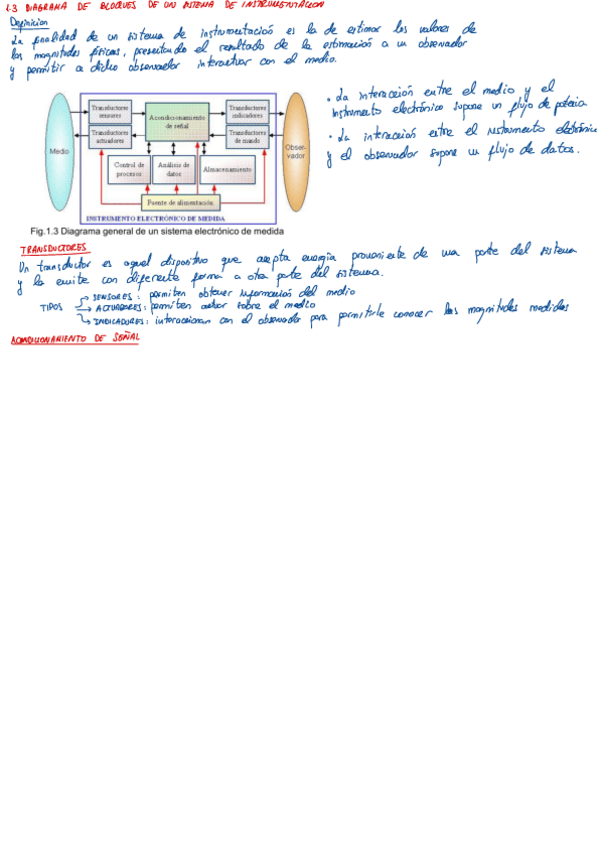 1.3 DIAGRAMA DE BLOQUES DE UN SISTEMA DE INSTRUMENTACION
Definicion
La finalidad de un sistema de instrumentación es la de estimar los valores de
las magnitudes físicas, presentando el resultado de la estimación a un observador
y permitir a dicho observador interactuar con el medio.
Medio
Transductores sensores
Transductores actuadores
Acondicionamiento de señal
Transductores indicadores
Transductores de mando
Observador
Control de procesos
Análisis de datos
Almacenamiento
Fuente de alimentación
INSTRUMENTO ELECTRÓNICO DE MEDIDA
Fig.1.3 Diagrama general de un sistema electrónico de medida
• La interacción entre el medio y el
instrumento electrónico supone un flujo de potencia
• La interacción entre el instrumento electrónico
y el observador supone un flujo de datos.
TRANSDUCTORES
Un transductor es aquel dispositivo que acepta energía proveniente de una parte del sistema
y la emite con diferente forma a otra parte del sistema.
TIPOS
→ SENSORES: permiten obtener información del medio
→ ACTUADORES: permiten actuar sobre el medio
→ INDICADORES: interaccionan con el observador para permitirle conocer las magnitudes medidas
ACONDICIONAMIENTO DE SEÑAL